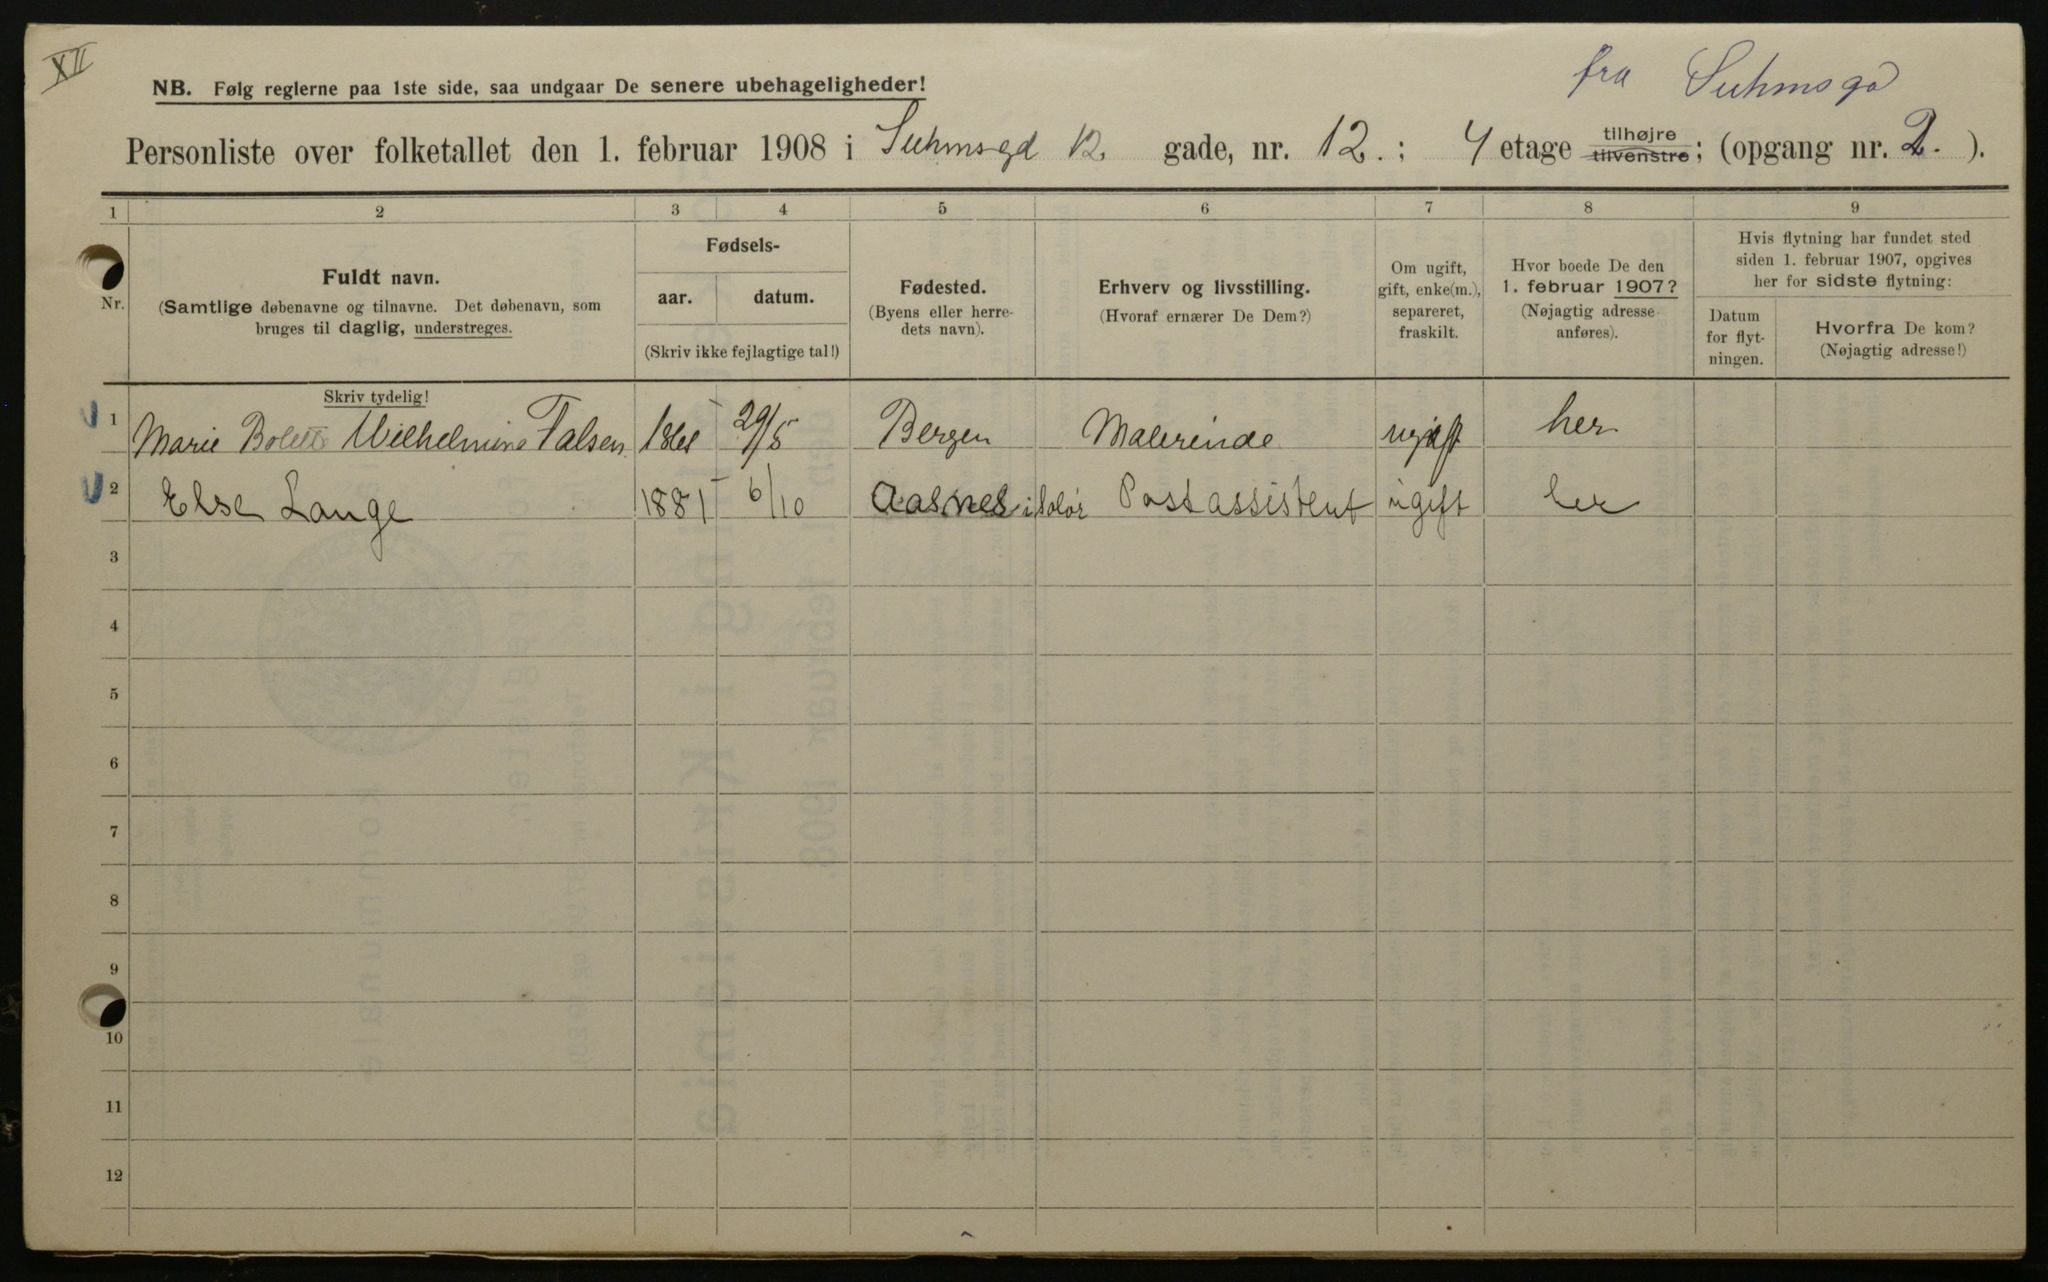 XII
NB. Følg reglerne paa 1ste side, saa undgaar De senere ubehageligheder!
fra Suhmsgd
Personliste over folketallet den 1. februar 1908 i Suhmsgd 12. gade, nr. 12.; 4 etage tilhøjre tilvenstre; (opgang nr. 2.).
1 2 3 4 5 6 7 8 9
Nr.
Fuldt navn.
(Samtlige døbenavne og tilnavne. Det døbenavn, som
bruges til daglig, understreges.
Fødsels-
aar. datum.
(Skriv ikke fejlagtige tal!)
Fødested.
(Byens eller herre-
dets navn).
Erhverv og livsstilling.
(Hvoraf ernærer De Dem?)
Om ugift,
gift, enke(m.),
separeret,
fraskilt.
Hvor boede De den
1. februar 1907?
(Nøjagtig adresse
anføres).
Hvis flytning har fundet sted
siden 1. februar 1907, opgives
her for sidste flytning:
Datum
for flyt-
ningen.
Hvorfra De kom?
(Nøjagtig adresse!)
Skriv tydelig!
1 Marie Bolette Wilhelmine Falsen 29/5 Bergen Malerinde ugift her
2 Else Lange 1881 6/10 Aasnes i Solør Postassistent ugift her
3
4
5
6
7
8
9
10
11
12